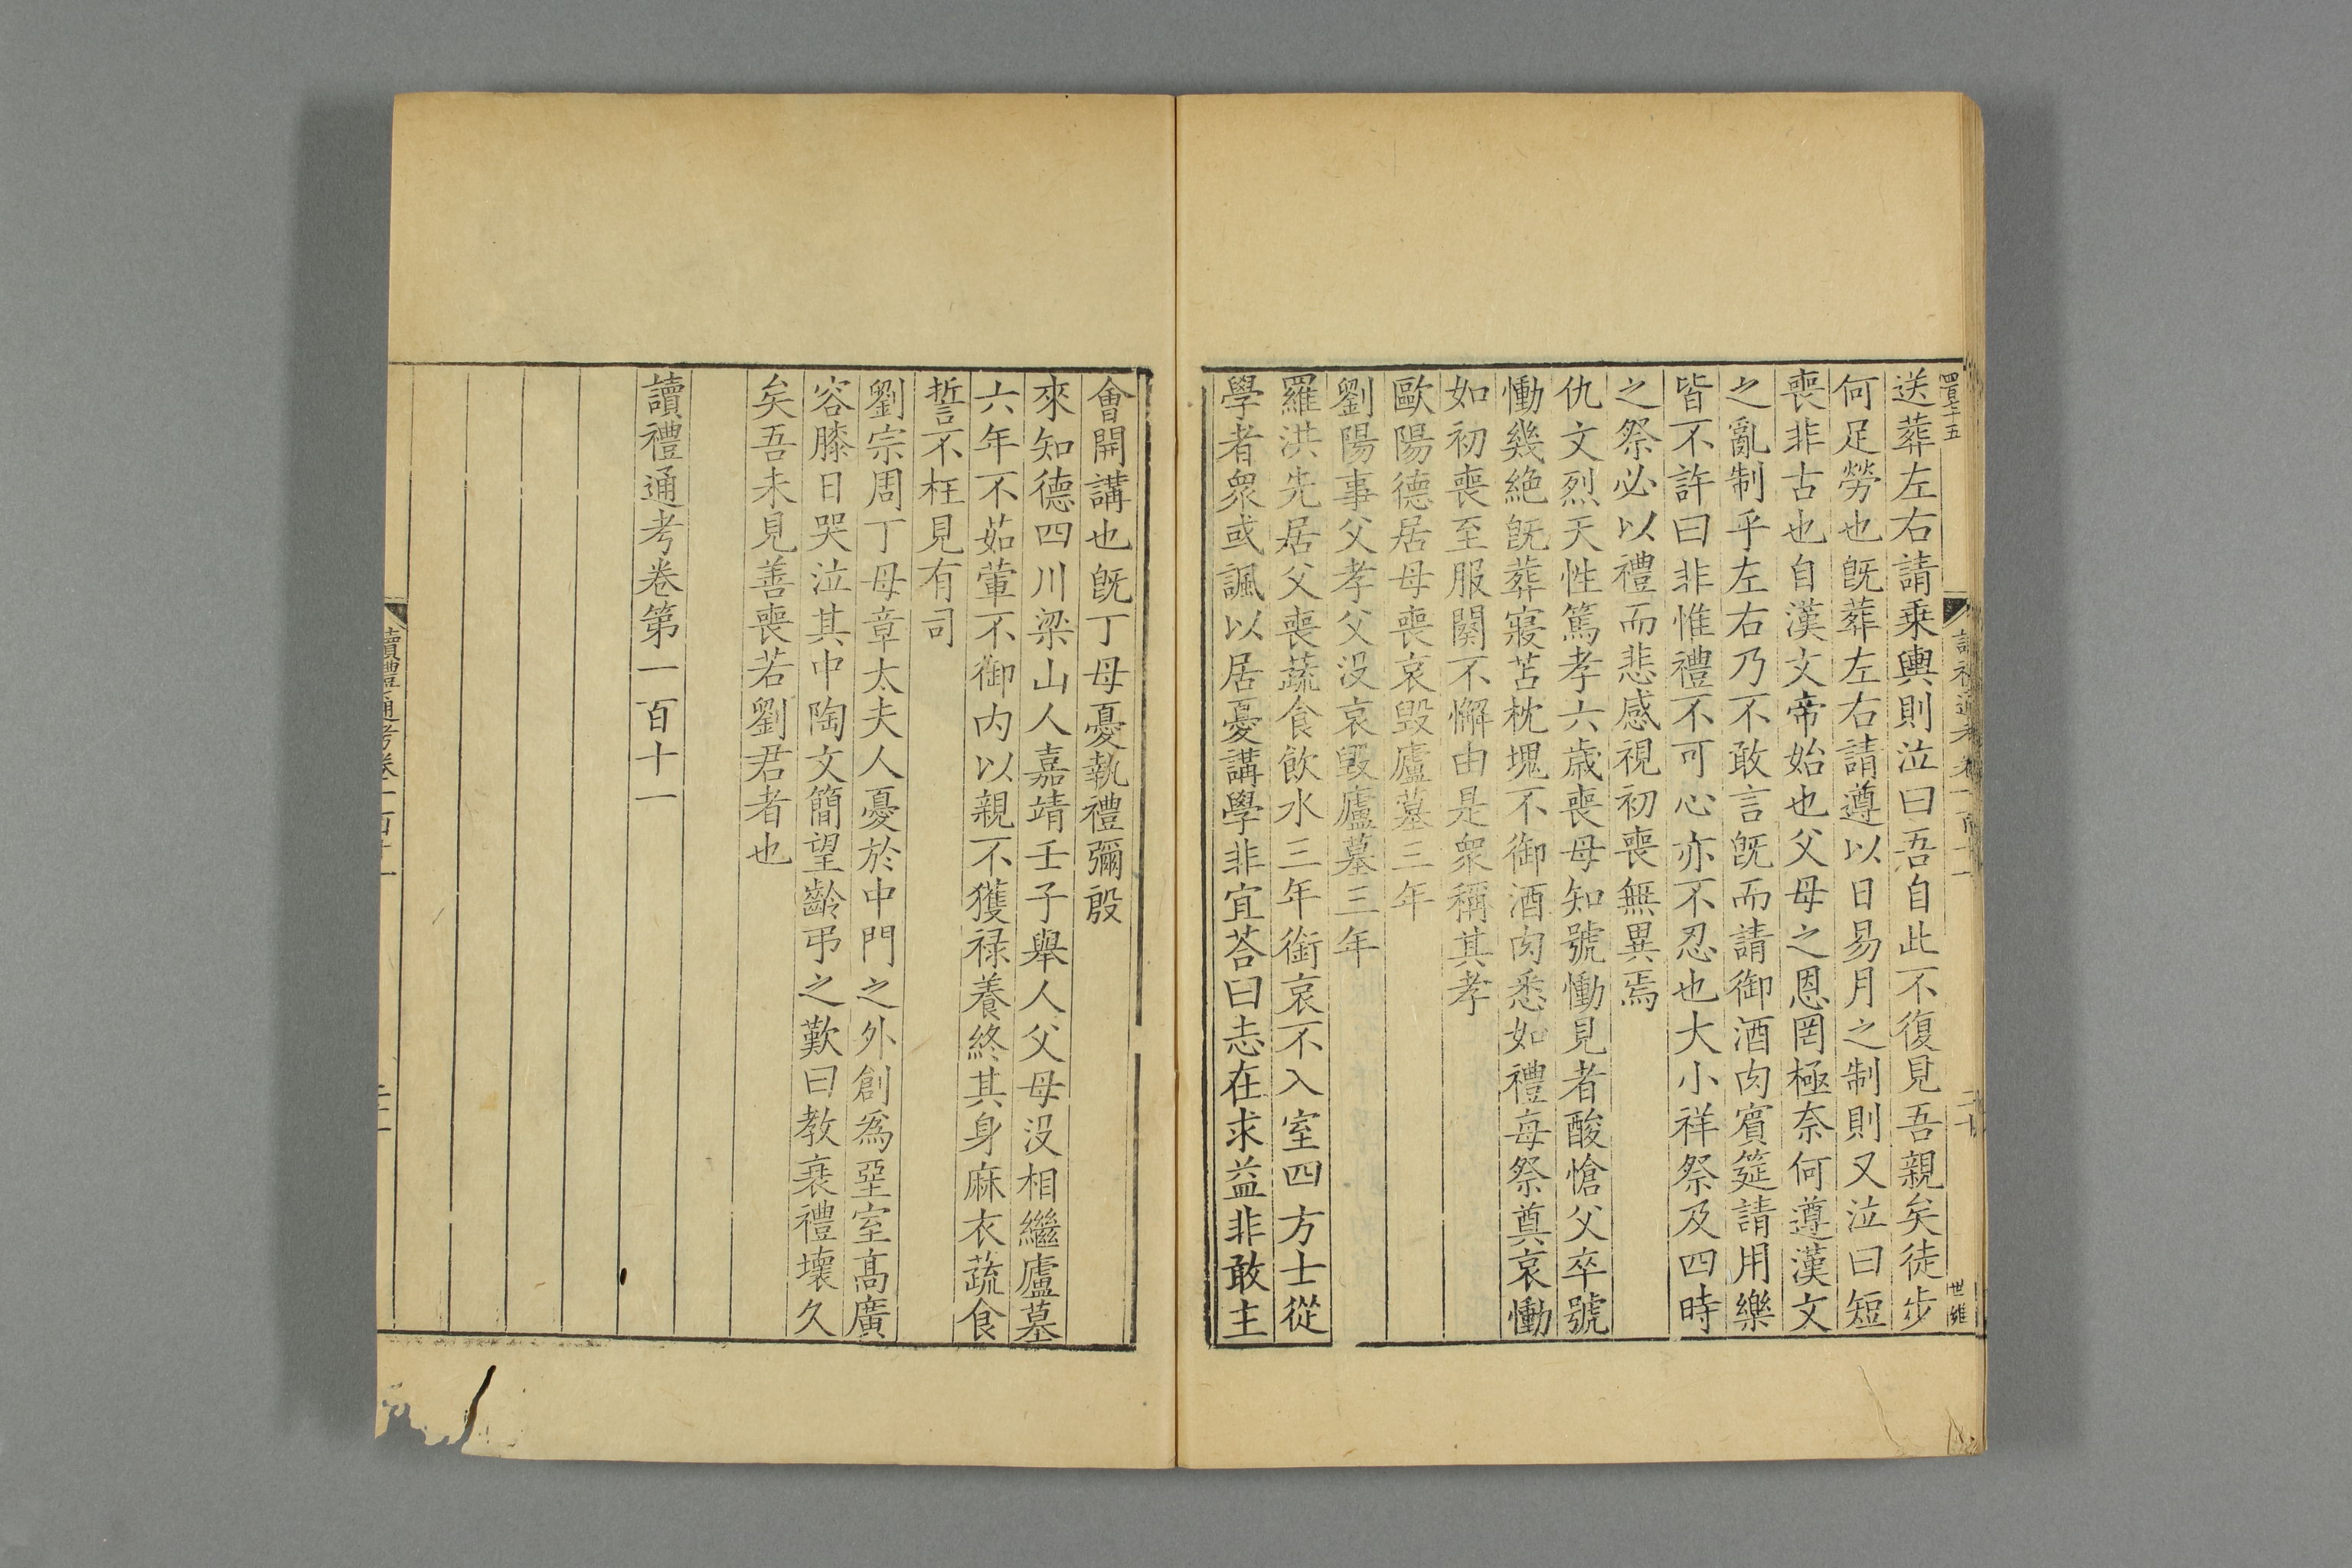 四百七十五
讀禮通考卷一百十一
二十
世維
送葬左右請乗輿則泣曰吾自此不復見吾親矣徒步
何足勞也旣葬左右請遵以日易月之制則又泣曰短
喪非古也自漢文帝始也父母之恩罔極奈何遵漢文
之亂制乎左右乃不敢言旣而請御酒肉賓筵請用樂
皆不許曰非惟禮不可心亦不忍也大小祥祭及四時
之祭必以禮而悲感視初喪無異焉
仇文烈天性篤孝六歲喪母知號慟見者酸愴父卒號
慟幾絶旣葬寢苫枕塊不御酒肉悉如禮每祭奠哀慟
如初喪至服闋不懈由是衆稱其孝
歐陽德居母喪哀毁廬墓三年
劉陽事父孝父没哀毁廬墓三年
羅洪先居父喪蔬食飲水三年銜哀不入室四方士從
學者衆或諷以居憂講學非宜荅曰志在求益非敢主
會開講也旣丁母憂執禮彌殷
來知德四川梁山人嘉靖壬子舉人父母没相繼廬墓
六年不茹葷不御内以親不獲禄養終其身麻衣蔬食
誓不枉見有司
劉宗周丁母章太夫人憂於中門之外創爲堊室高廣
容膝日哭泣其中陶文簡望齡弔之歎曰教衰禮壞久
矣吾未見善喪若劉君者也
讀禮通考卷第一百十一
讀禮通考卷一百十一